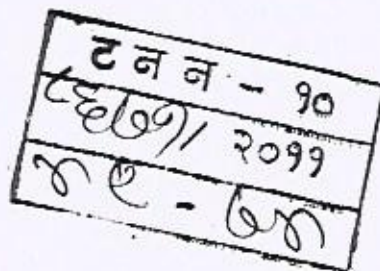 ट न न - १०
८६७१/ २०११
४९ - ७४